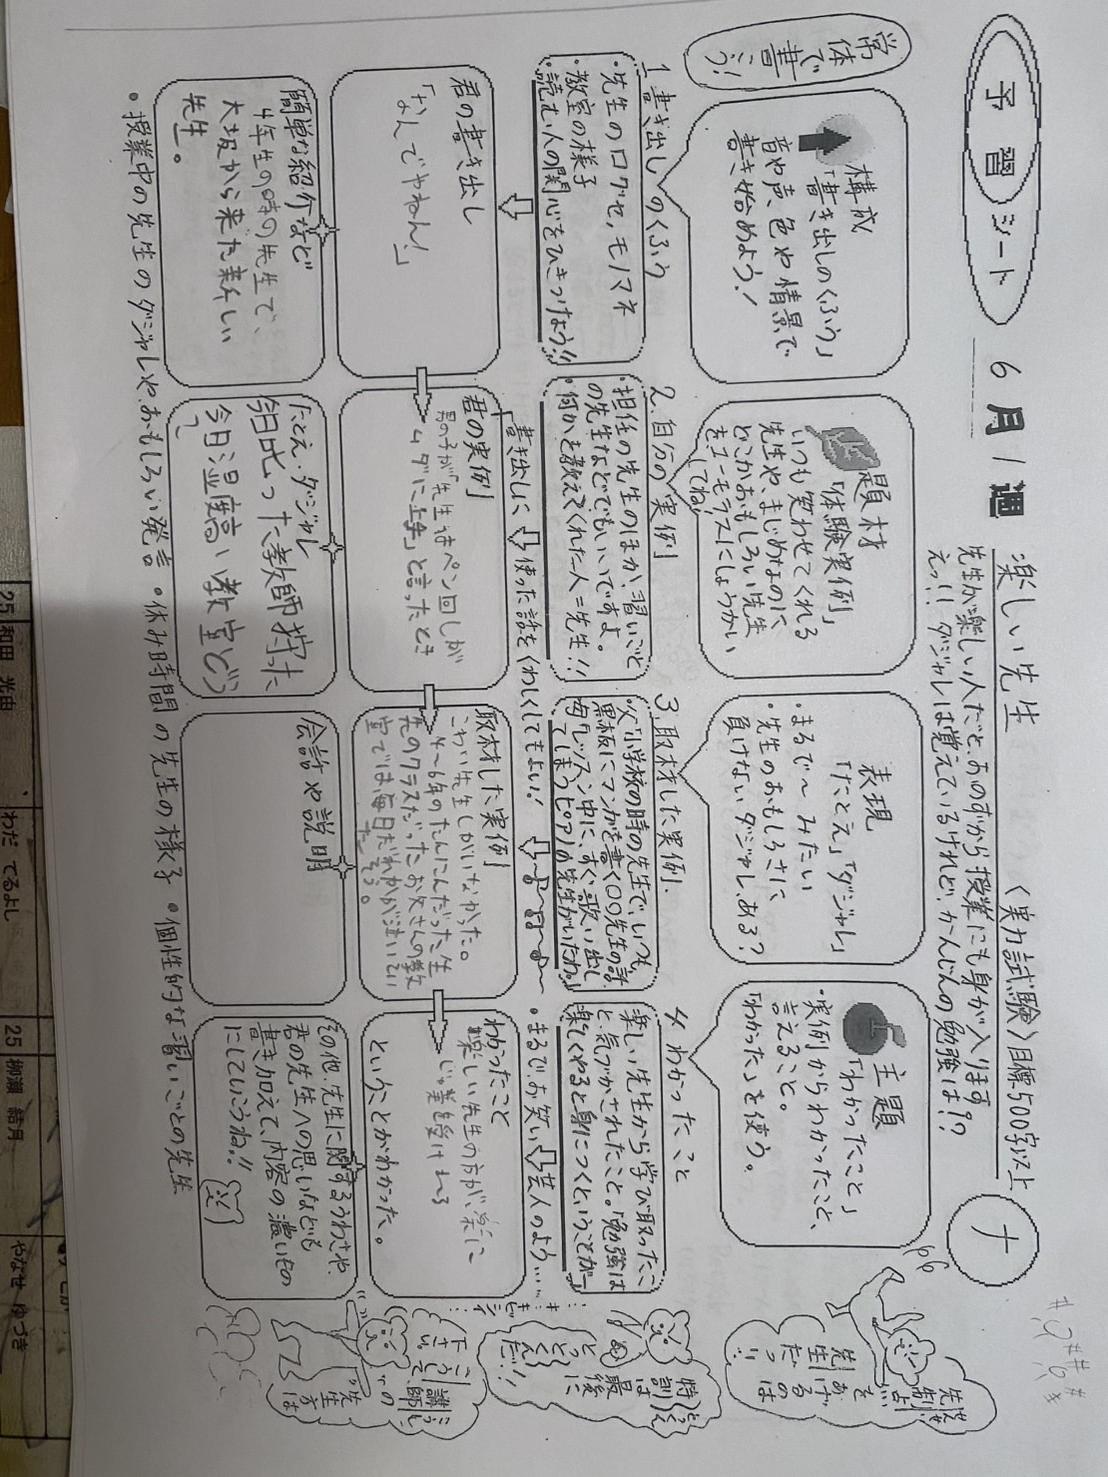 予習シート
6月1週
楽しい先生
〈実力試験〉目標500字以上
ナ
先生が楽しい人だと、おのずから授業にも身が入ります
えっ!! ダジャレは覚えているけれど、かんじんの勉強は!?
常体で書こう!
構成
「書き出しのくふう」
音や声、色や情景で
書き始めよう!
題材
「体験実例」
いつも笑わせてくれる
先生や、まじめなのに
どこかおもしろい先生
をユーモラスにしょうかい
してね!
表現
「たとえ」「ダジャレ」
・まるで〜みたい
・先生のおもしろさに
負けないダジャレ、ある?
主題
「わかったこと」
・実例からわかったこと、
言えること。
「わかった」を使う。
1 書き出しのくふう
・先生の口グセ、モノマネ
・教室の様子
・読む人の関心をひきつけよう!!
2 自分の実例
・担任の先生のほか、習いごと
の先生などでもいいですよ。
・何かを教えてくれた人=先生!!
3 取材した実例
・父「小学校の時の先生で、いつも
黒板にマンガを書く〇〇先生の話
・母「レッスン中に、すぐ歌い出し
てしまうピアノの先生がいたわ」
4 わかったこと
楽しい先生から学び取ったこ
と、気づかされたこと。「勉強は
楽しくやると身につくということが…」
君の書き出し
「なんでやねん!」
書き出しに使った話をくわしくしてもよい!
君の実例
男の子が「先生はペン回しが
ムダに上手」と言ったとき
取材した実例
こわい先生しかいなかった。
4〜6年のたんにんだった先生
先のクラスだったお父さんの教
室では毎日だれかが泣いてい
た そう。
・まるで、お笑い芸人のよう……
わかったこと
楽しい先生の方が、楽に
じゅ業を受けれる
ということがわかった。
簡単な紹介など
4年生の時の先生で、
大坂から来た新しい
先生。
たとえ・ダジャレ
今日比った教師狩った
今日湿度高い教室どう
会話や説明
その他、先生に関するうわさや、
君の先生への思いなども
書き加えて、内容の濃いもの
にしていこうね!!
・授業中の先生のダジャレや、おもしろい発言 ・休み時間の先生の様子 ・個性的な習いごとの先生
先制点
をあげる
のは
先生だっ!!
特訓は
最後に
とっとくんだ!!
講師の
先生方は
こうして
下さい
25 和田 光由
わだ てるよし
25 柳瀬 結月
やなせ ゆづき